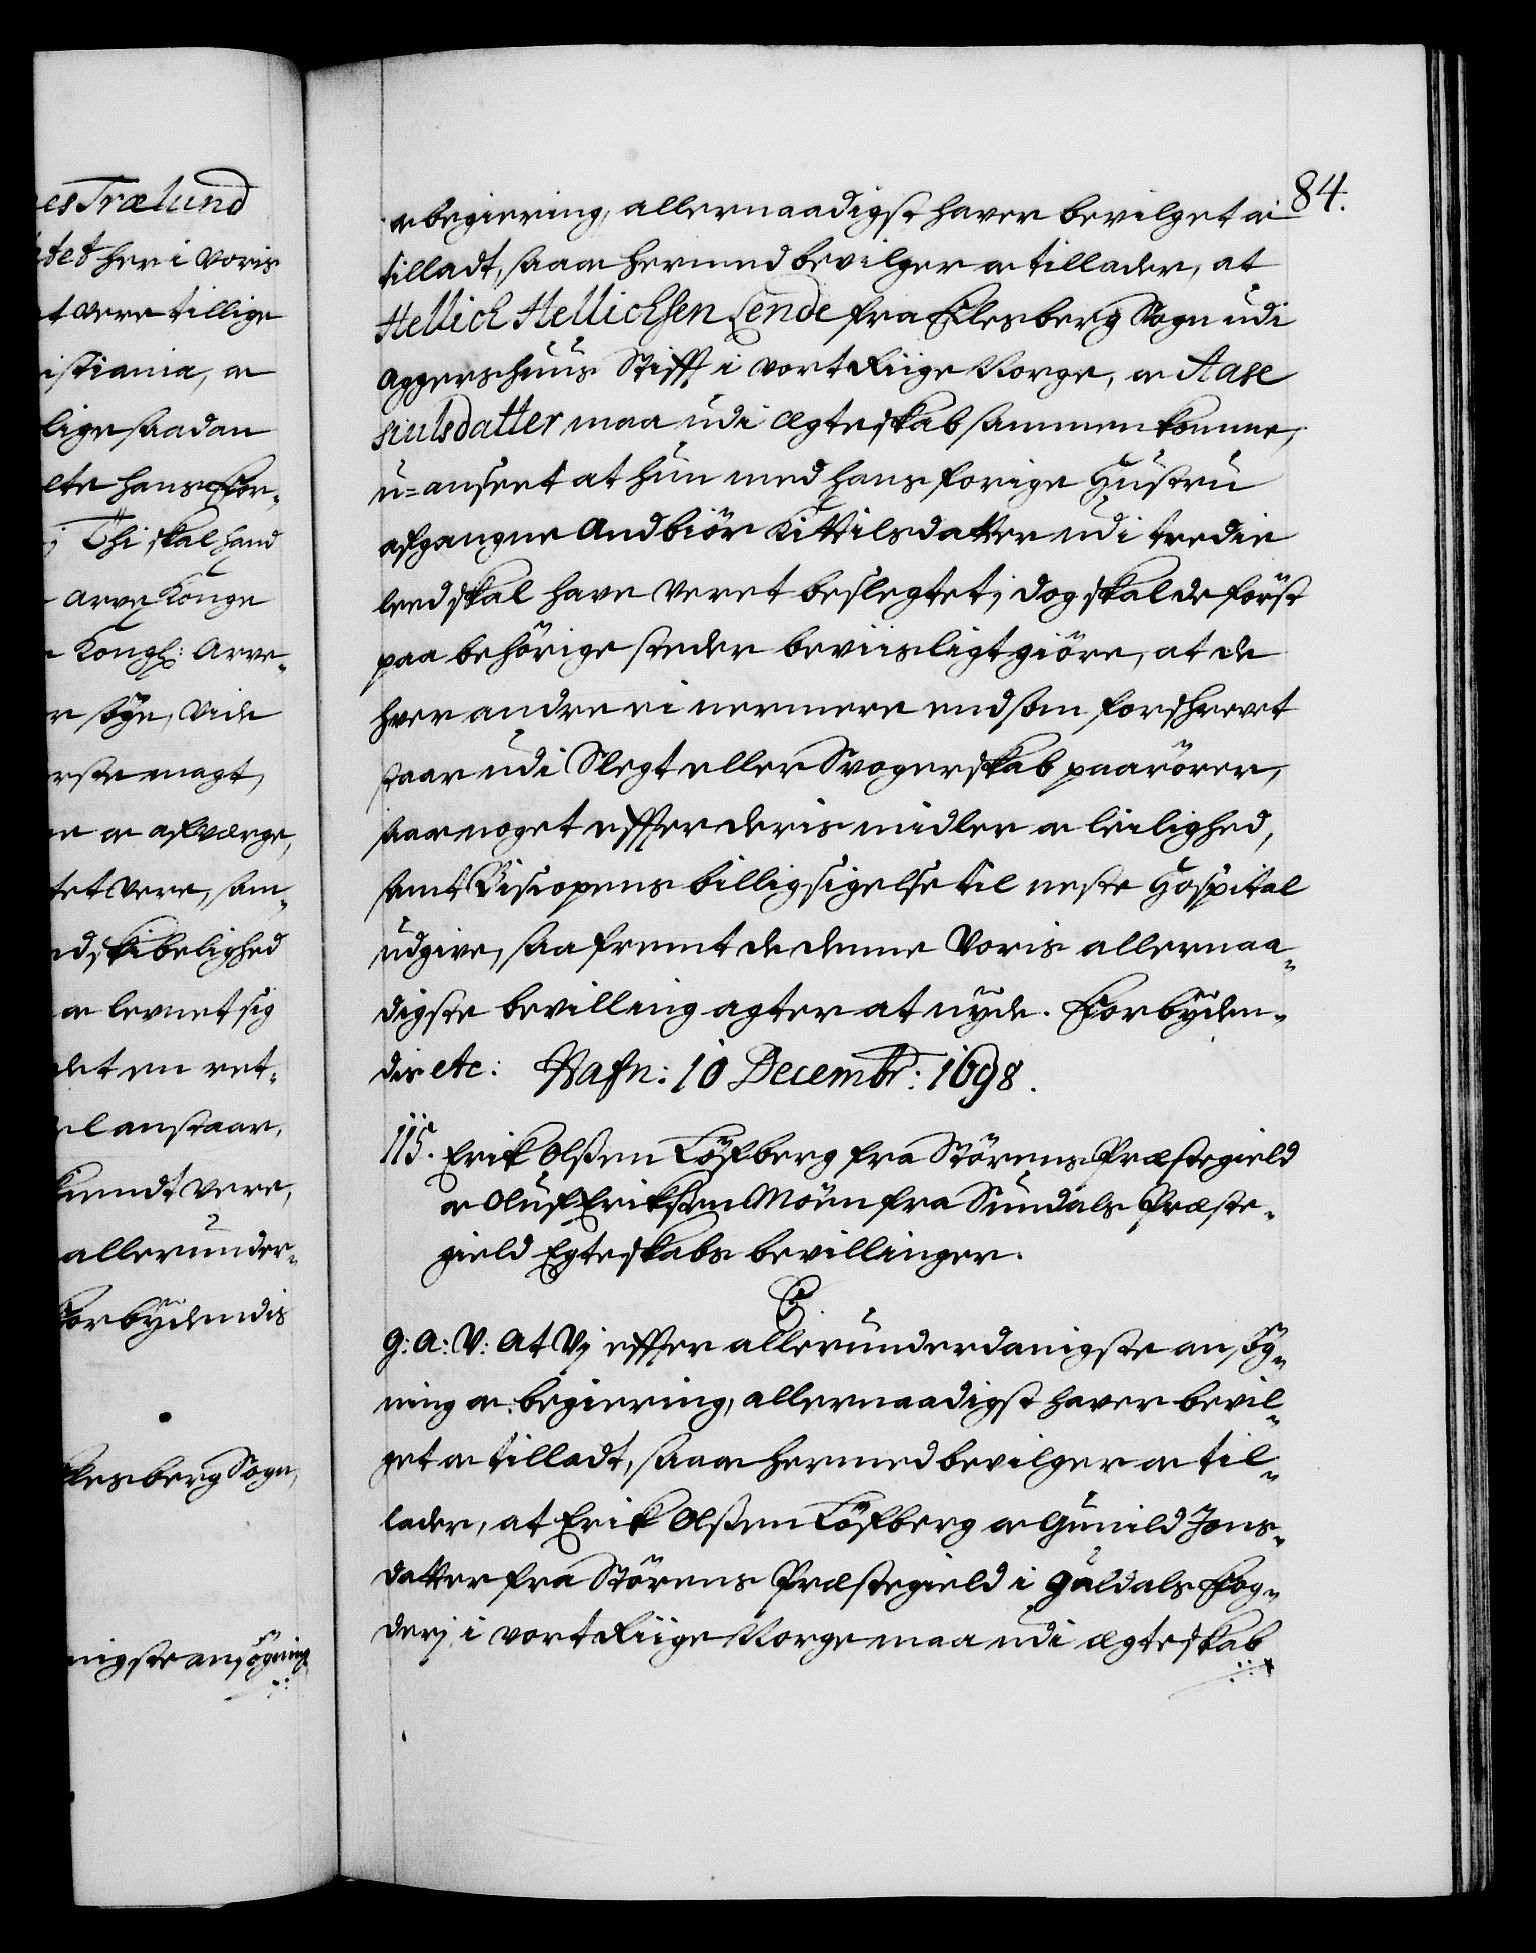 esTrælund
tet her i voris
t være tillige
istiania, oc
lige saadan
lte hans For-
; Thi skal hand
arve Konge
Kongl: Arve-
r søge, vide
rste magt,
n oc afværge,
tet være, sam-
d, skibelighed
oc levnet sig
det en ret-
el anstaar,
kiendt være,
allerunder-
Forbydendis
lesberg Sogn,
nigste ansøgning
84.
oc begiering, allernaadigst haver bevilget oc
tilladt, saa oc hermed bevilger oc tillader, at
Hellich Hellichsen Lende fra Eilesberg Sogn udi
Aggershuus Stifft i vort Riige Norge, oc Aase
siulsdatter maa udi ægteskab sammenkomme,
u=anseet at hun med hans forige Hustru
afgangne Andbiör Kittilsdatter udi tredie
leed skal have veret beslegtet; dog skal de först
paa behörige steder beviisligt giöre, at de
hver andre ei nermere end som forschrevet
staar udi Slegt eller Svogerskab paarörer,
saa oc noget effter deris midler oc leilighed,
samt Biscopens billigsigelse til neste Hospital
udgive, saafremt de denne Voris allernaa-
digste bevilling agter at nyde. Forbyden-
dis etc: Hafn: 10 Decembr: 1698.
115. Erik Olssen Löfberg fra Störens Præstegield
oc Oluf Erikssen Möen fra Sundals Præste-
gield Egteskabs bevillinger.
C 5.
G: A: V: At Vj effter allerunderdanigste ansög-
ning oc begiering, allernaadigst haver bevil-
get oc tilladt, saa oc hermed bevilger oc til-
lader, at Erik Olssen Löfberg oc Gunild Jons-
datter fra Störens Præstegield i Guldals Fog-
derj i vort Riige Norge maa udi ægteskab